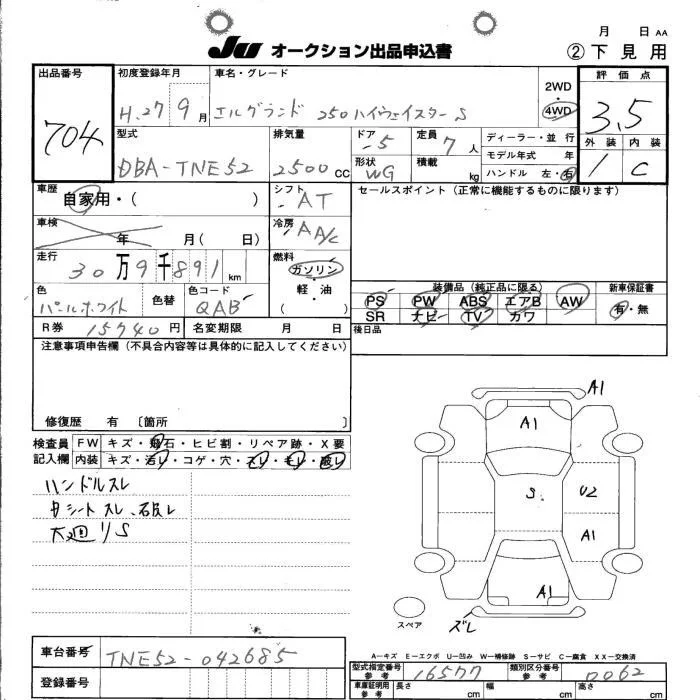 月 日 AA
JU オークション出品申込書
② 下見用
出品番号
704
初度登録年月
H.27 9月
車名・グレード
エルグランド 250ハイウェイスターS
2WD
・
4WD
評価点
3.5
外装 内装
1 C
型式
DBA-TNE52
排気量
2500 CC
ドア
-5
定員
7 人
形状
WG
積載
kg
ディーラー・並行
モデル年式 年
ハンドル 左・右
車歴
自家用・( )
シフト
AT
セールスポイント(正常に機能するものに限ります)
車検
年 月( 日)
冷房
AA/C
走行
30万9千891km
燃料
ガソリン
・
軽油
( )
色
パールホワイト
色替
色コード
QAB
装備品(純正品に限る)
PS PW ABS エアB AW
SR ナビ TV カワ
新車保証書
有・無
R券 15740円
名変期限 月 日
後日品
注意事項申告欄(不具合内容等は具体的に記入してください)
修復歴 有 〔箇所 〕
検査員記入欄
FW キズ・飛石・ヒビ割・リペア跡・X要
内装 キズ・汚レ・コゲ・穴・スレ・モレ・破レ
ハンドルスレ
スレ
大廻リS
A1
A1
S
U2
A1
A1
スペア
ズレ
A-キズ E-エクボ U-凹み W-補修跡 S-サビ C-腐食 XX-交換済
車台番号
TNE52-042685
登録番号
型式指定番号
参考
16577
類別区分番号
参考
0062
車庫証明用
参考
長さ cm 幅 cm 高さ cm